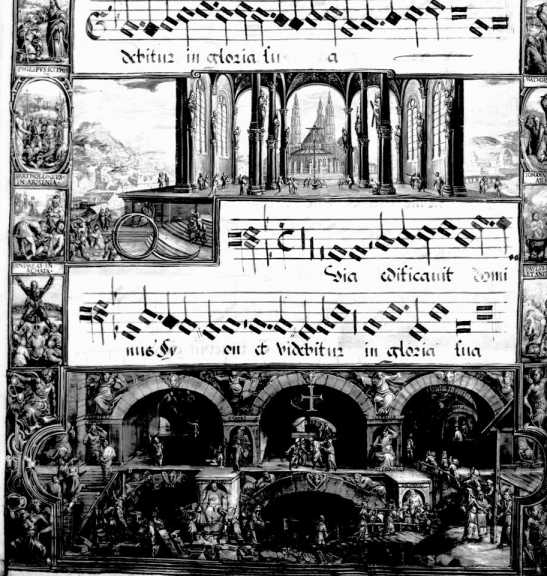 debitur in gloria su a
PHILIPPVS
BARTHOLOMEVS
IN ARMENIA
Quia edificauit domi
nus Sy on et videbitur in gloria sua